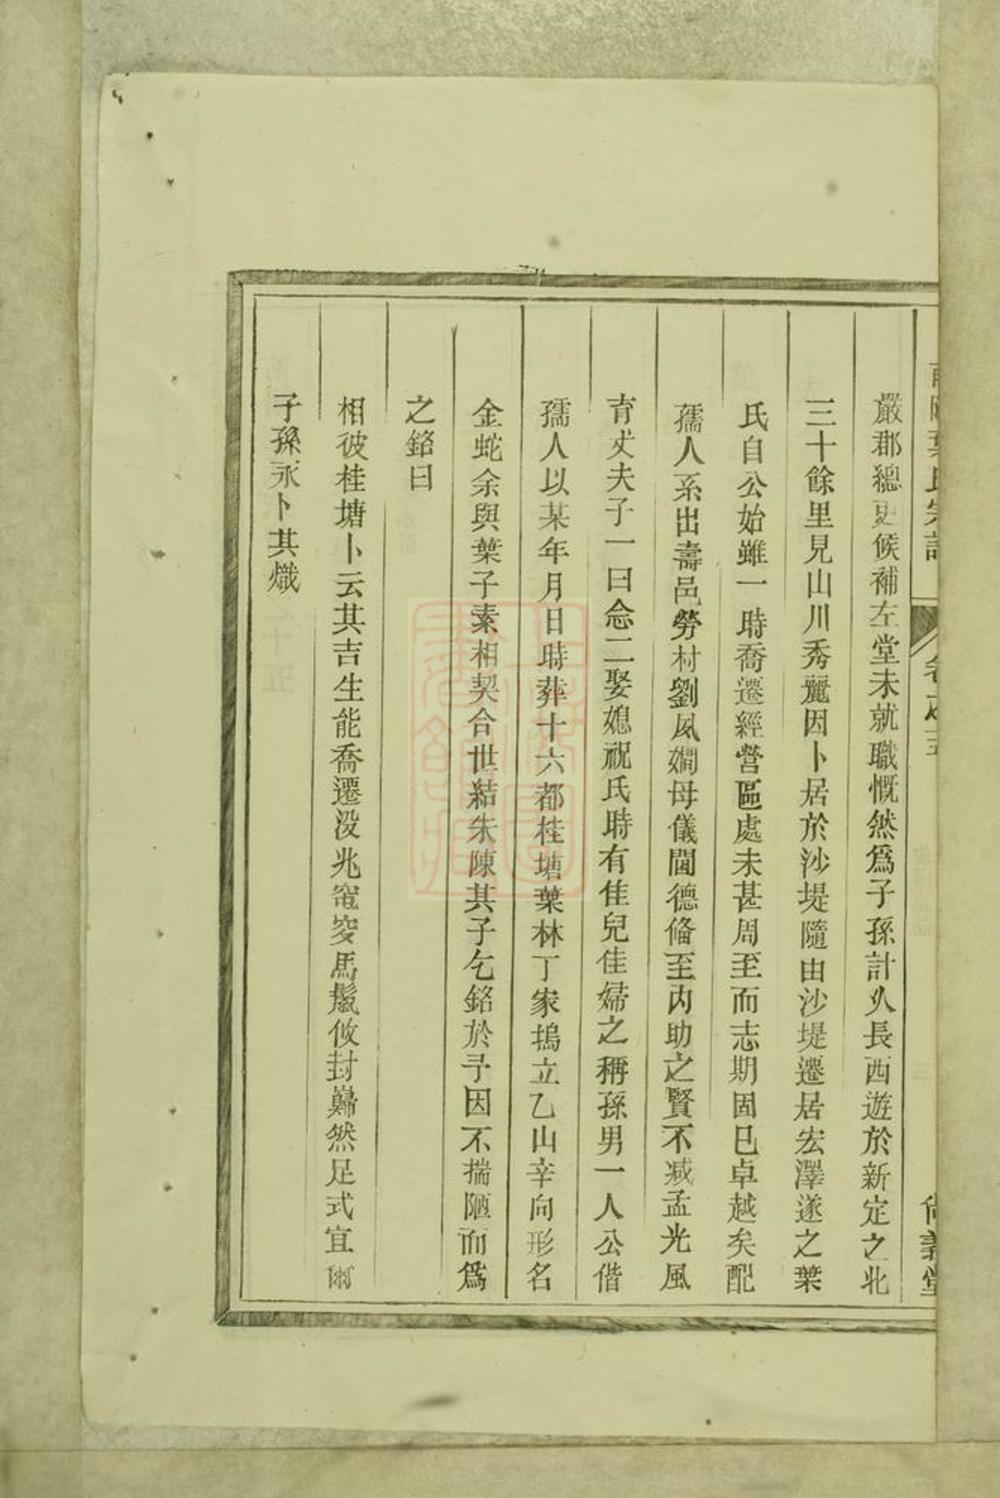 南陽葉氏宗譜 卷之五 尚義堂
嚴郡總史候補左堂未就職慨然爲子孫計久長西遊於新定之北
三十餘里見山川秀麗因卜居於沙堤隨由沙堤遷居宏澤遂之葉
氏自公始雖一時喬遷經營區處未甚周至而志期固已卓越矣配
孺人系出壽邑勞村劉夙嫻母儀閫德僃至内助之賢不减孟光風
育丈夫子一曰念二娶媳祝氏時有佳兒佳婦之稱孫男一人公偕
孺人以某年月日時葬十六都桂塘葉林丁家塢立乙山辛向形名
金蛇余與葉子素相契合世結朱陳其子乞銘於予因不揣陋而爲
之銘曰
相彼桂塘卜云其吉生能喬遷没兆窀穸馬鬛攸封巋然足式宜爾
子孫永卜其熾